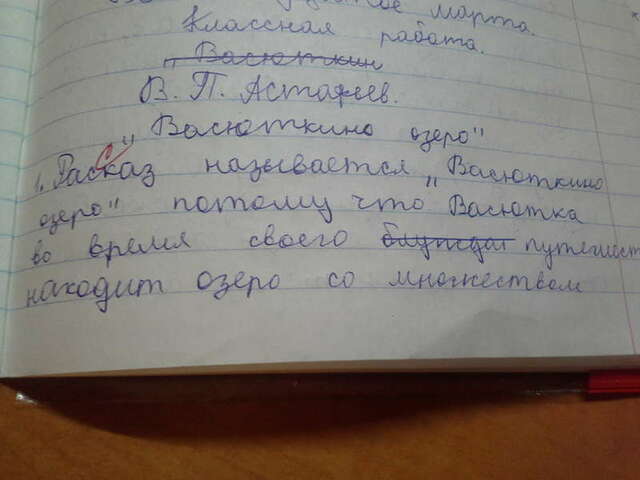 марта.
Классная работа.
„Васюткин
В. П. Астафьев.
„Васюткино озеро"
1. Рассказ называется „Васюткино
озеро" потому что Васютка
во время своего блуждат путешест
находит озеро со множеством